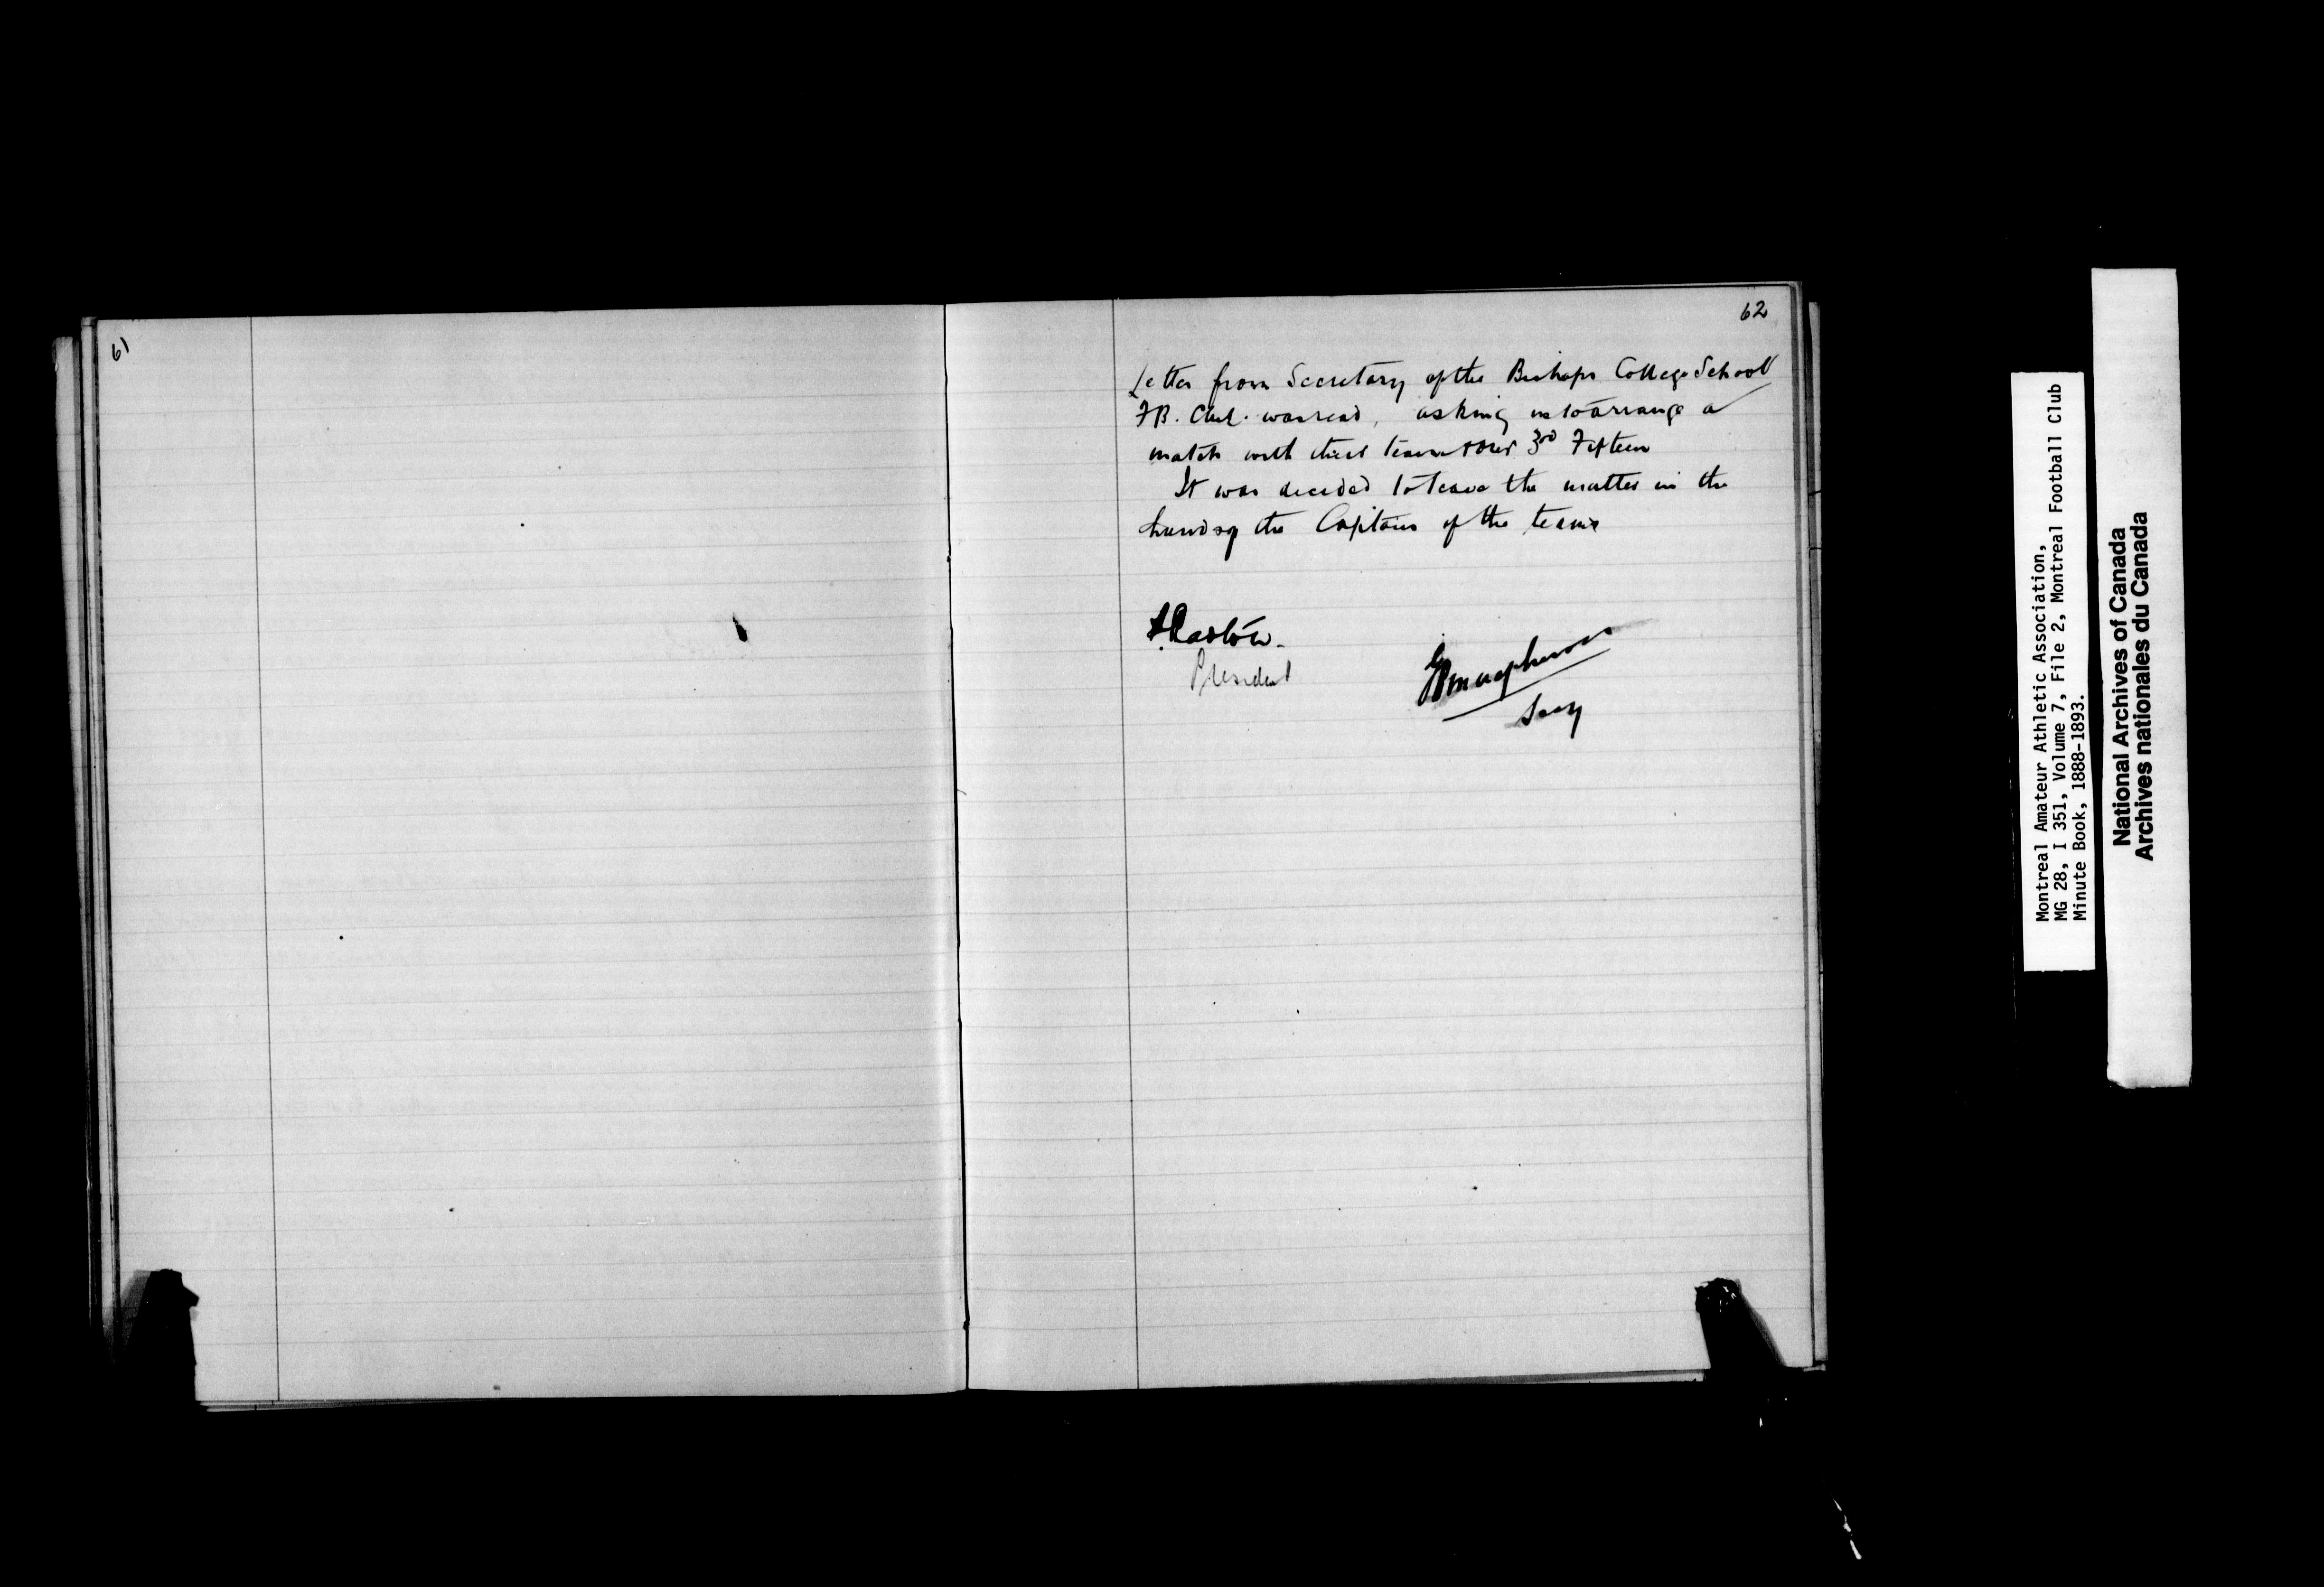 61
62
Letter from Secretary of the Bishops College School
FB. Club. was read, asking us to arrange a
match with their team & our 3rd Fifteen
It was decided to leave the matter in the
hands of the Captain of the team
President
Macpherson
Secy
Montreal Amateur Athletic Association,
MG 28, I 351, Volume 7, File 2, Montreal Football Club
Minute Book, 1888-1893.
National Archives of Canada
Archives nationales du Canada